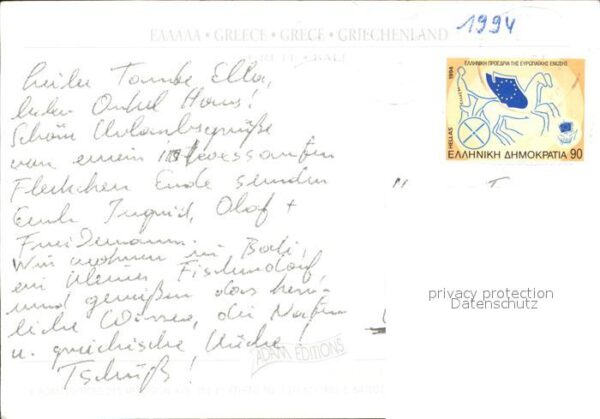 1994
ΕΛΛΑΔΑ • GREECE • GRÈCE • GRIECHENLAND
CRETE • BALI
Liebe Tante Ella,
lieber Onkel Hans!
Schöne Urlaubsgrüße
von einem interessanten
Fleckchen Erde senden
Euch Ingrid, Olaf +
Friedemann.
Wir wohnen in Bali,
ein kleines Fischerdorf,
und genießen das herr-
liche Wasser, die Natur
u. griechische Küche
Tschüß!
ΕΛΛΗΝΙΚΗ ΠΡΟΕΔΡΙΑ ΤΗΣ ΕΥΡΩΠΑΪΚΗΣ ΕΝΩΣΗΣ
1994
HELLAS
ΕΛΛΗΝΙΚΗ ΔΗΜΟΚΡΑΤΙΑ 90
privacy protection
Datenschutz
ADAM EDITIONS